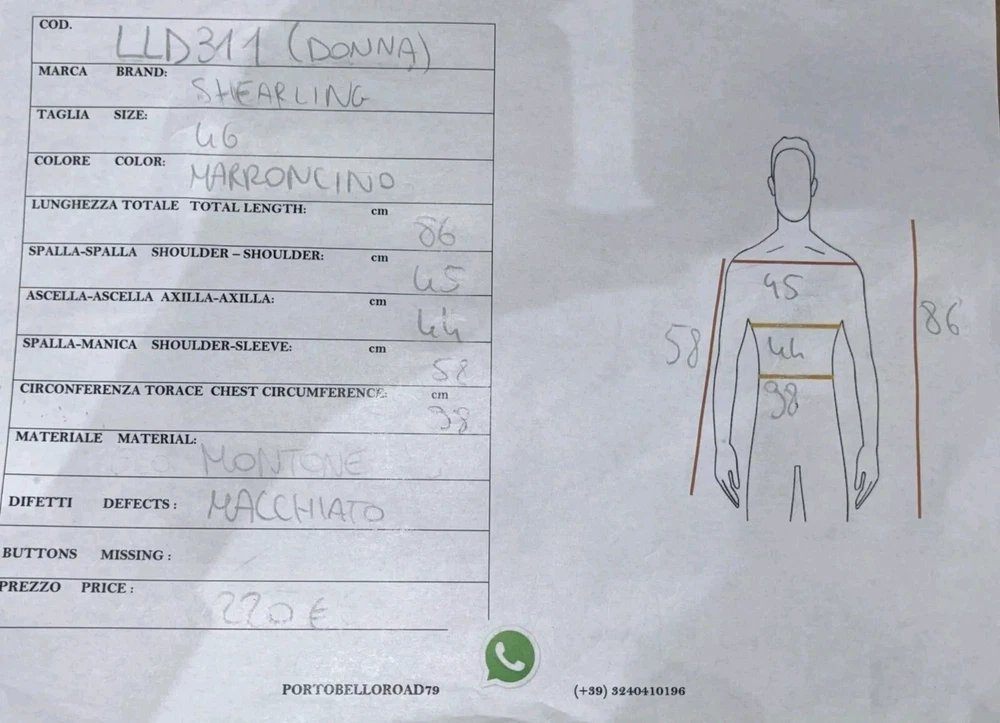 COD. LLD311 (DONNA)
MARCA BRAND: SHEARLING
TAGLIA SIZE: 46
COLORE COLOR: MARRONCINO
LUNGHEZZA TOTALE TOTAL LENGTH: cm 86
SPALLA-SPALLA SHOULDER – SHOULDER: cm 45
ASCELLA-ASCELLA AXILLA-AXILLA: cm 44
SPALLA-MANICA SHOULDER-SLEEVE: cm 58
CIRCONFERENZA TORACE CHEST CIRCUMFERENCE: cm 98
MATERIALE MATERIAL: MONTONE
DIFETTI DEFECTS : MACCHIATO
BUTTONS MISSING :
PREZZO PRICE : 220 €
45
58
44
86
98
PORTOBELLOROAD79 (+39) 3240410196